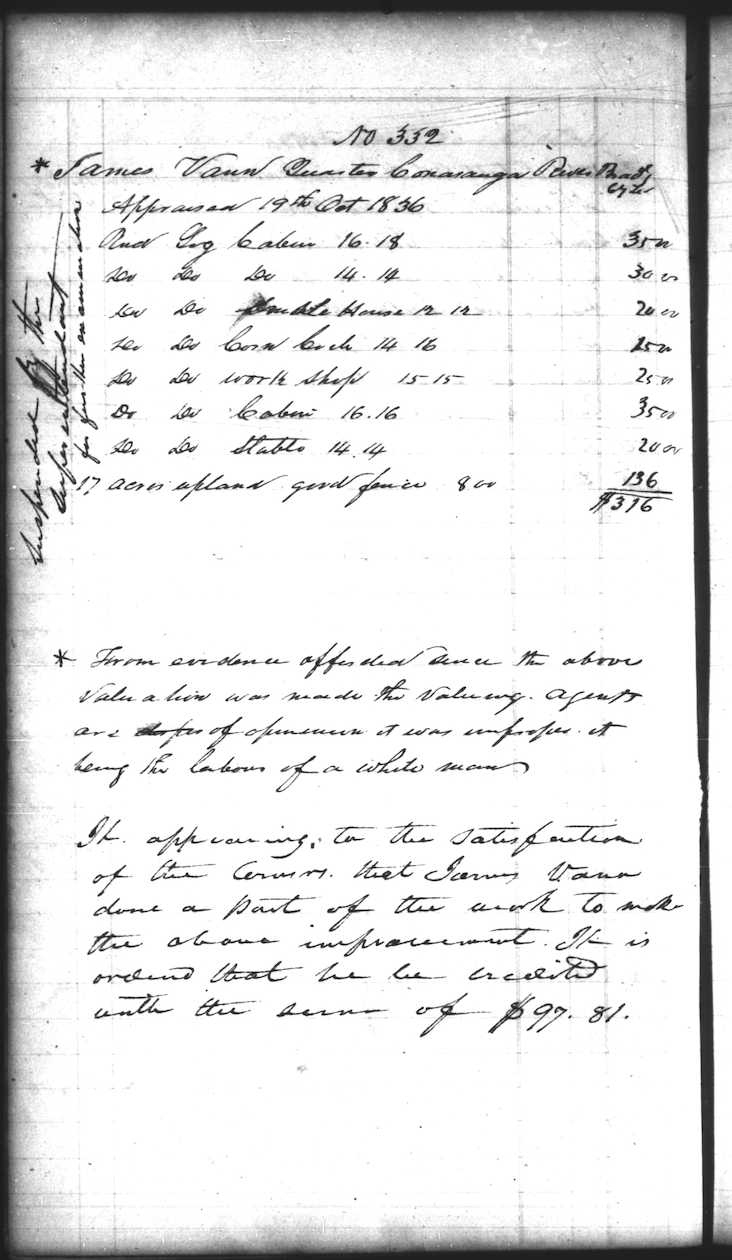 No 332
* James Vann Quarter Conasauga River Brady
Appraised 19th Oct 1836
Rud Log Cabin 16.18 3500
Do Do Do 14.14 3000
Do Do Smoke House 12 12 2000
Do Do Corn Crib 14 16 1500
Do Do work shop 15-15 2500
Do Do Cabin 16.16 3500
Do Do Stable 14.14 2000
17 acres upland good fence 800 136
$316
Suspended by the
Superintendant
for further examination
* From evidence afforded since the above
Valuation was made the Valueing agents
are of openeon it was improper it
being the labour of a white man
It appearing, to the satisfaction
of the Comrs. that James Vann
done a part of the work to make
the above improvement. It is
orderd that he be credited
with the sum of $97.81.